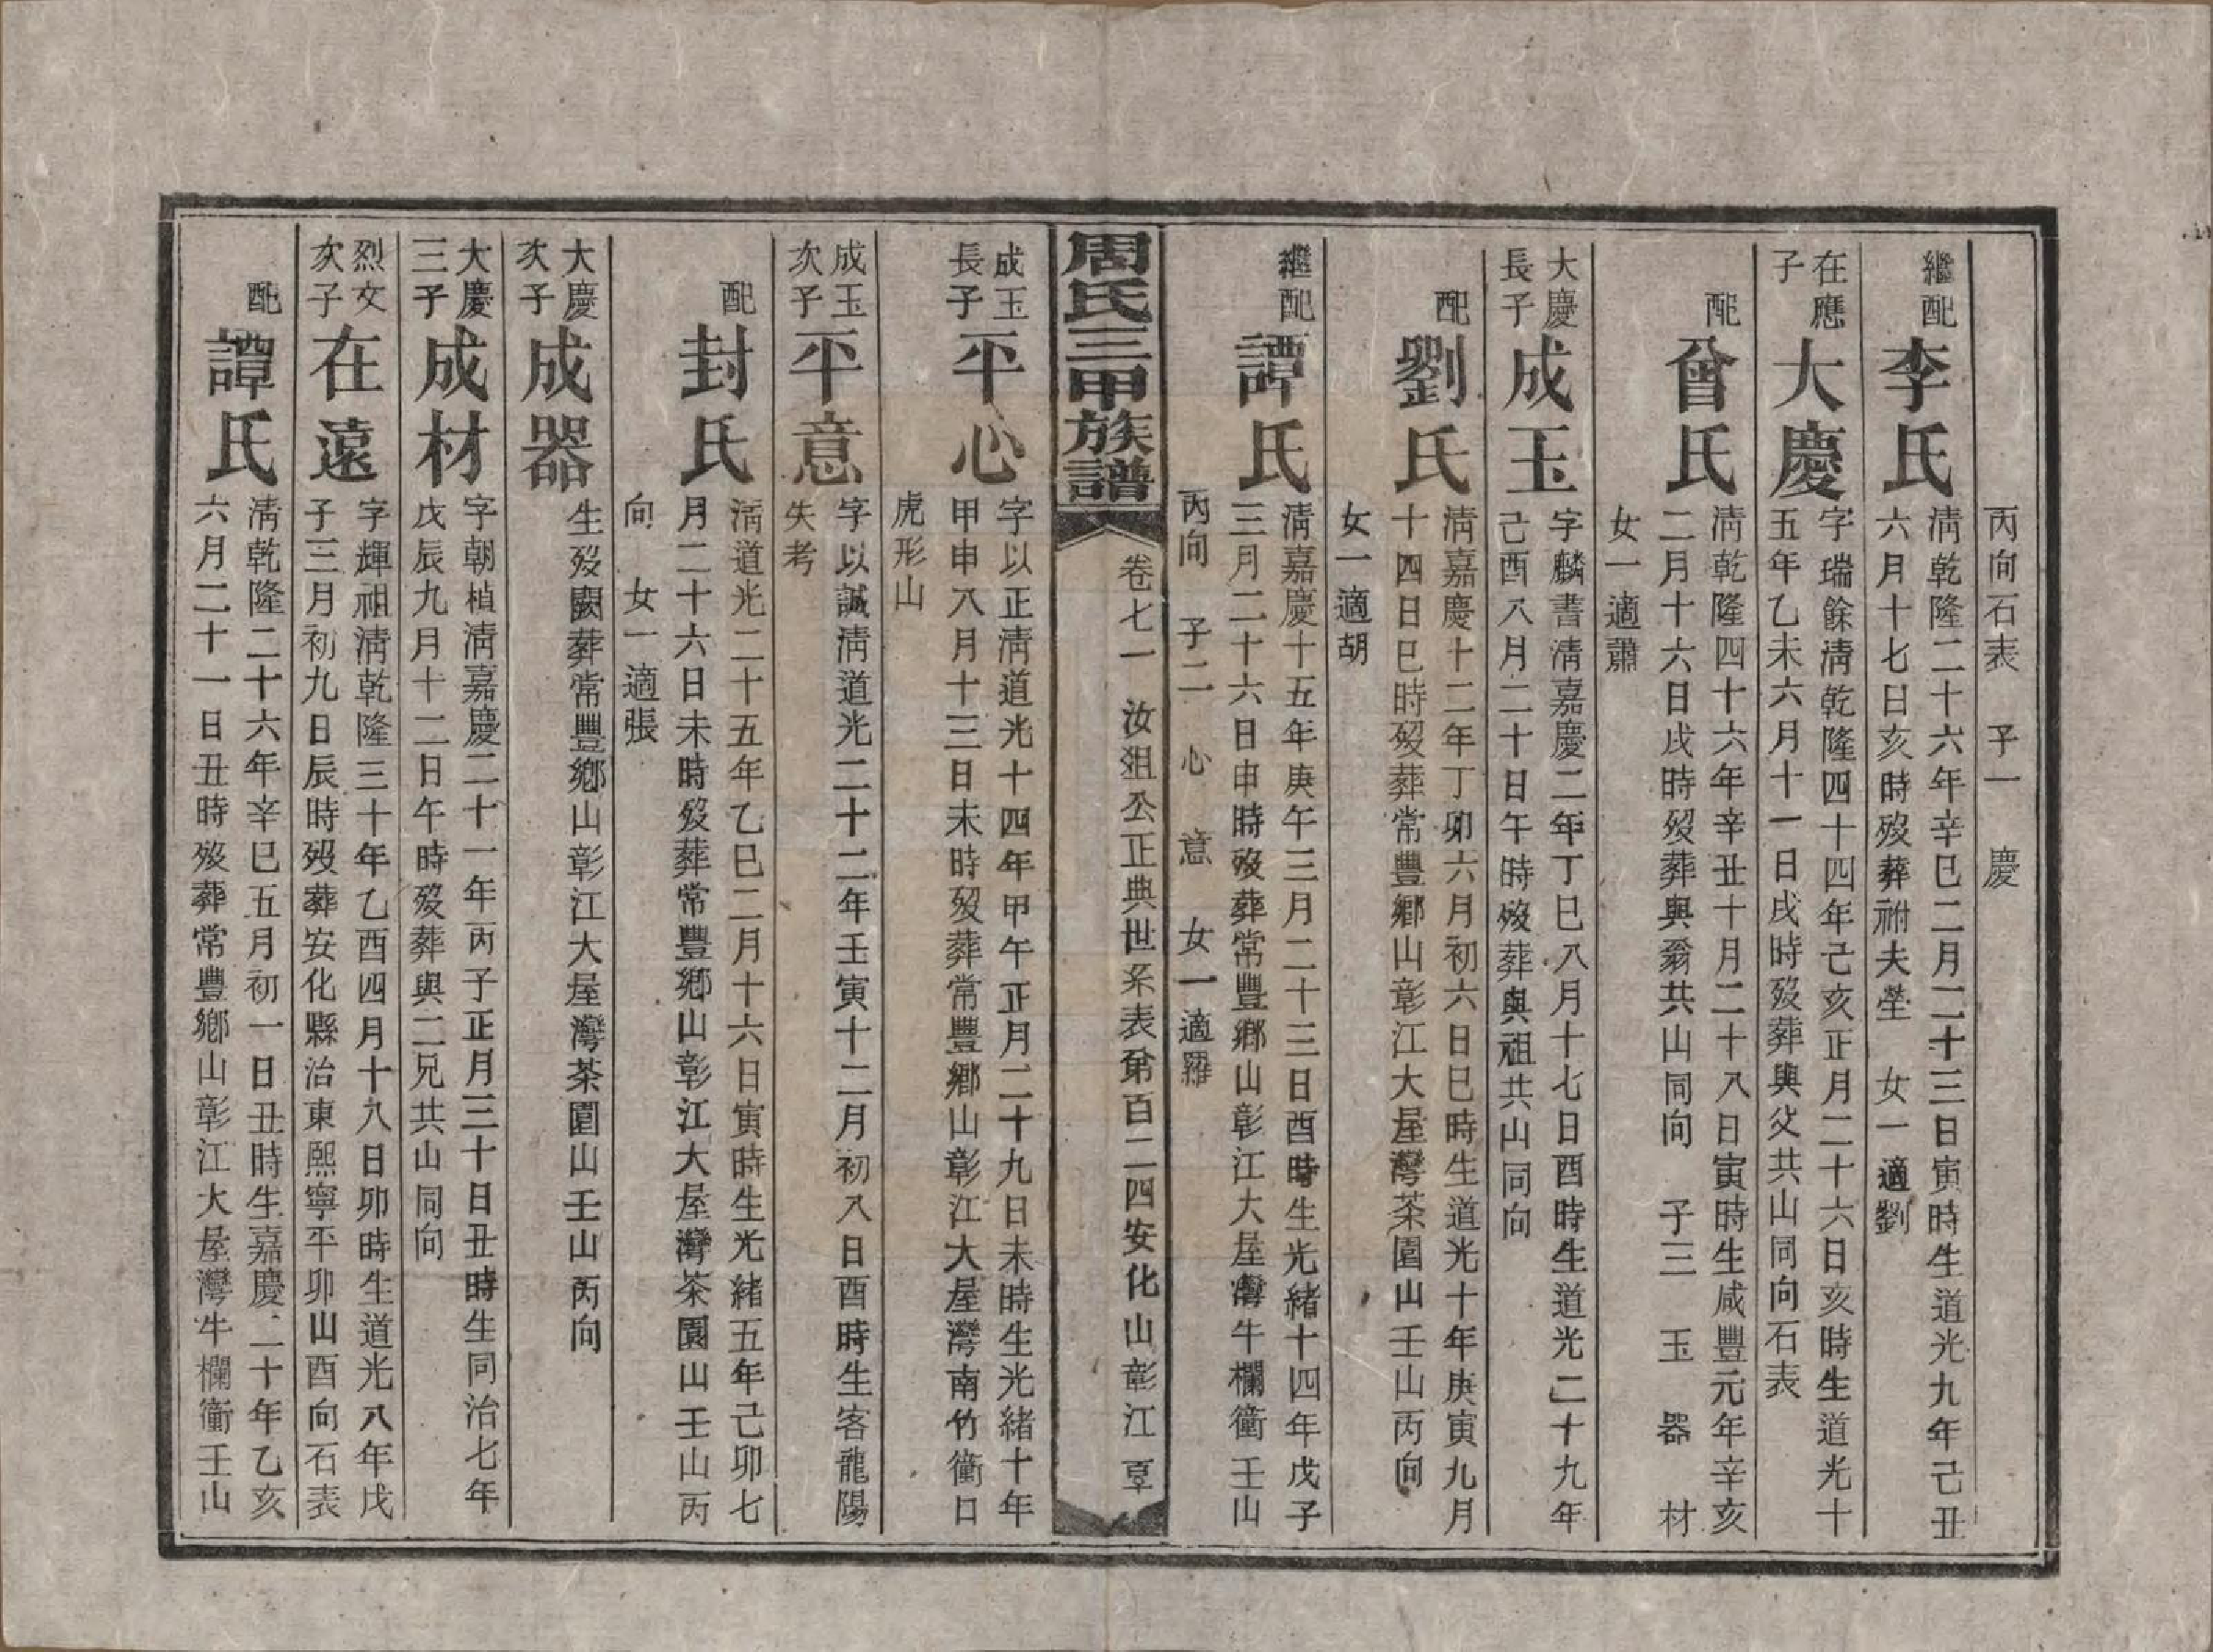 丙向石表　子一　慶
繼配
李氏
淸乾隆二十六年辛巳二月二十三日寅時生道光九年己丑
六月十七日亥時歿葬祔夫塋　女一適劉
在應
子
大慶
字瑞餘淸乾隆四十四年己亥正月二十六日亥時生道光十
五年乙未六月十一日戌時歿葬與父共山同向石表
配
曾氏
淸乾隆四十六年辛丑十月二十八日寅時生咸豐元年辛亥
二月十六日戌時歿葬與翁共山同向　子三　玉　器　材
女一適蕭
大慶
長子
成玉
字麟書淸嘉慶二年丁巳八月十七日酉時生道光二十九年
己酉八月二十日午時歿葬與祖共山同向
配
劉氏
淸嘉慶十二年丁卯六月初六日巳時生道光十年庚寅九月
十四日巳時歿葬常豐鄉山彰江大屋灣茶園山壬山丙向
女一適胡
繼配
譚氏
淸嘉慶十五年庚午三月二十三日酉時生光緒十四年戊子
三月二十六日申時歿葬常豐鄉山彰江大屋灣牛欄衝壬山
丙向　子二　心　意　女一適羅
周氏三甲族譜
卷七一　汝狙公正典世系表第百二四安化山彰江　享
成玉
長子
平心
字以正淸道光十四年甲午正月二十九日未時生光緒十年
甲申八月十三日未時歿葬常豐鄉山彰江大屋灣南竹衝口
虎形山
成玉
次子
平意
字以誠淸道光二十二年壬寅十二月初八日酉時生客龍陽
失考
配
封氏
淸道光二十五年乙巳二月十六日寅時生光緒五年己卯七
月二十六日未時歿葬常豐鄉山彰江大屋灣茶園山壬山丙
向　女一適張
大慶
次子
成器
生歿闕葬常豐鄉山彰江大屋灣茶園山壬山丙向
大慶
三子
成材
字朝楨淸嘉慶二十一年丙子正月三十日丑時生同治七年
戊辰九月十二日午時歿葬與二兄共山同向
烈文
次子
在遠
字輝祖淸乾隆三十年乙酉四月十八日卯時生道光八年戊
子三月初九日辰時歿葬安化縣治東熙寧平卯山酉向石表
配
譚氏
淸乾隆二十六年辛巳五月初一日丑時生嘉慶二十年乙亥
六月二十一日丑時歿葬常豐鄉山彰江大屋灣牛欄衝壬山